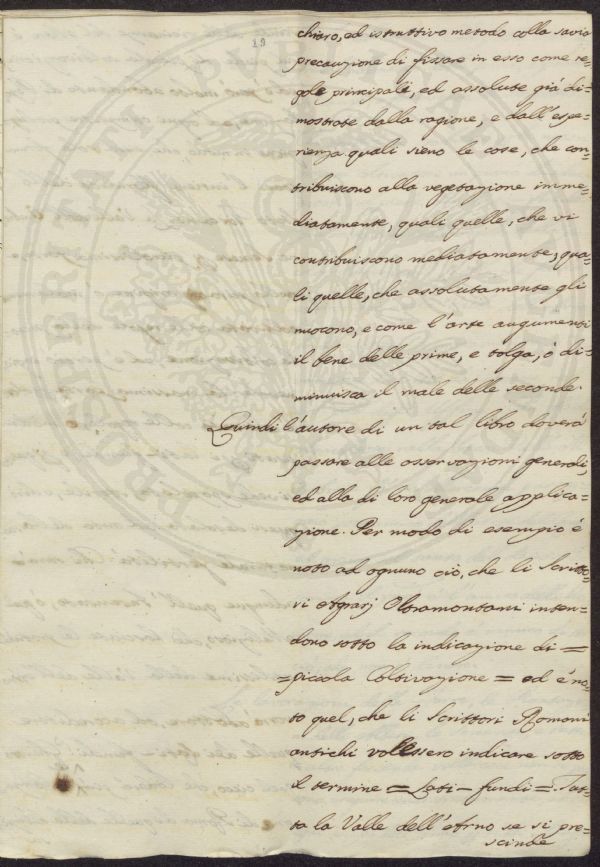 29
chiaro, ed istruttivo metodo colla savia
precauzione di fissare in esso come re=
gole principali, ed assolute già di=
mostrate dalla ragione, e dall'espe=
rienza quali sieno le cose, che con=
tribuiscono alla vegetazione imme=
diatamente, quali quelle, che vi
contribuiscono mediatamente, qua=
li quelle, che assolutamente gli
nuocono, e come l'arte augumenti
il bene delle prime, e tolga, ò di=
minuisca il male delle seconde.
Quindi l'autore di un tal libro doverà
passare alle osservazioni generali,
ed alla di loro generale applica=
zione. Per modo di esempio è
noto ad ognuno ciò, che li Scritto=
ri Agrarj Oltramontani inten=
dono sotto la indicazione di =
= piccola Coltivazione = ed è no=
to quel, che li Scrittori Romani
antichi volessero indicare sotto
il termine = Lati-fundi = Tut=
ta la Valle dell'Arno se si pre=
scinde